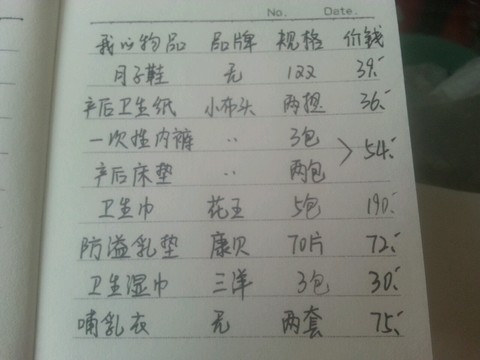 No. Date.
我的物品 品牌 规格 价钱
月子鞋 无 122 39.-
产后卫生纸 小布头 两提 36.-
一次性内裤 〃 3包
产后床垫 〃 两包 > 54.-
卫生巾 花王 5包 190.-
防溢乳垫 康贝 70片 72.-
卫生湿巾 三洋 3包 30.-
哺乳衣 无 两套 75.-